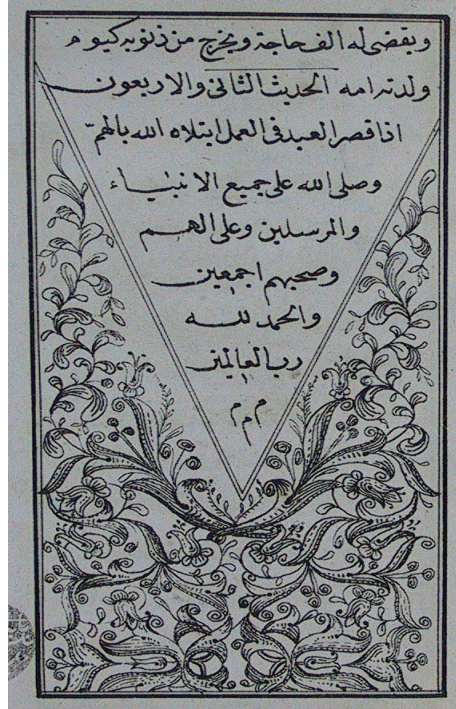 ويقضى له الف حاجة ويخرج من ذنوبه كيوم
ولدته امه الحديث الثانى والاربعون
اذا قصر العبد فى العمل ابتلاه الله بالهمّ
وصلى الله على جميع الانبياء
والمرسلين وعلى الهم
وصحبهم اجمعين
والحمد لله
رب العالمين
م م م